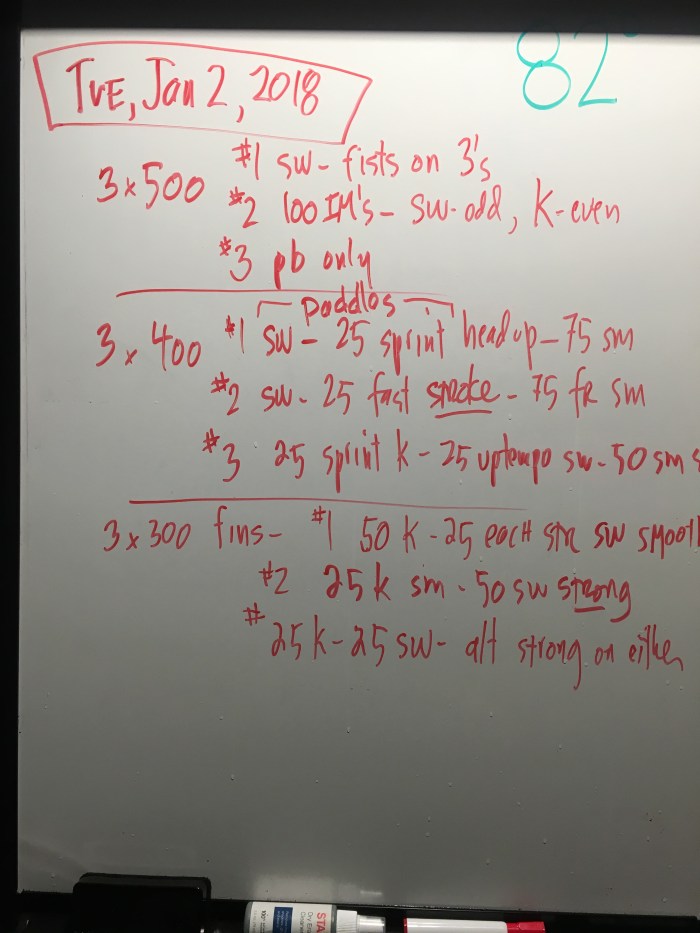 82°
TUE, Jan 2, 2018
3 x 500 #1 sw - fists on 3's
#2 100 IM's - sw-odd, K-even
#3 pb only
paddles
3 x 400 #1 sw - 25 sprint head up - 75 sm
#2 sw - 25 fast - 75 fr sm
#3 25 sprint k - 25 uptempo sw - 50 sm s
3 x 300 fins - #1 50 k - 25 each str sw smooth
#2 25 k sm - 50 sw strong
# 25 k - 25 sw - alt strong on either
STA
Dry Era